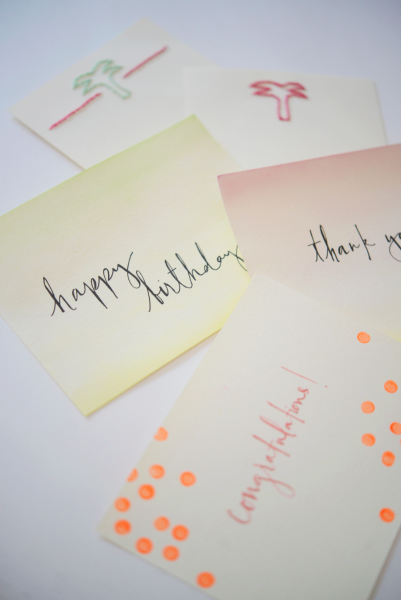 happy birthday
thank yo
congratulations!